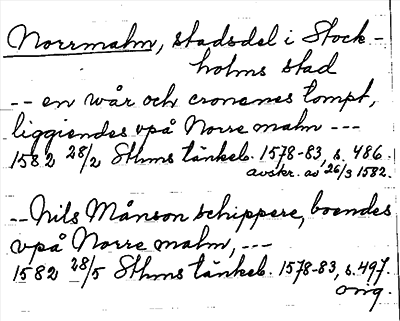 Norrmalm, stadsdel i Stock-
holms stad
-- en wår och cronenes tompt,
liggiendes vpå Norre malm ---
1582 28/2 Sthms tänkeb. 1578-83, s. 486.
avskr. av 26/3 1582.
--Nils Månson schippere, boendes
vpå Norre malm, ---
1582 28/5 Sthms tänkeb. 1578-83, s. 497.
orig.